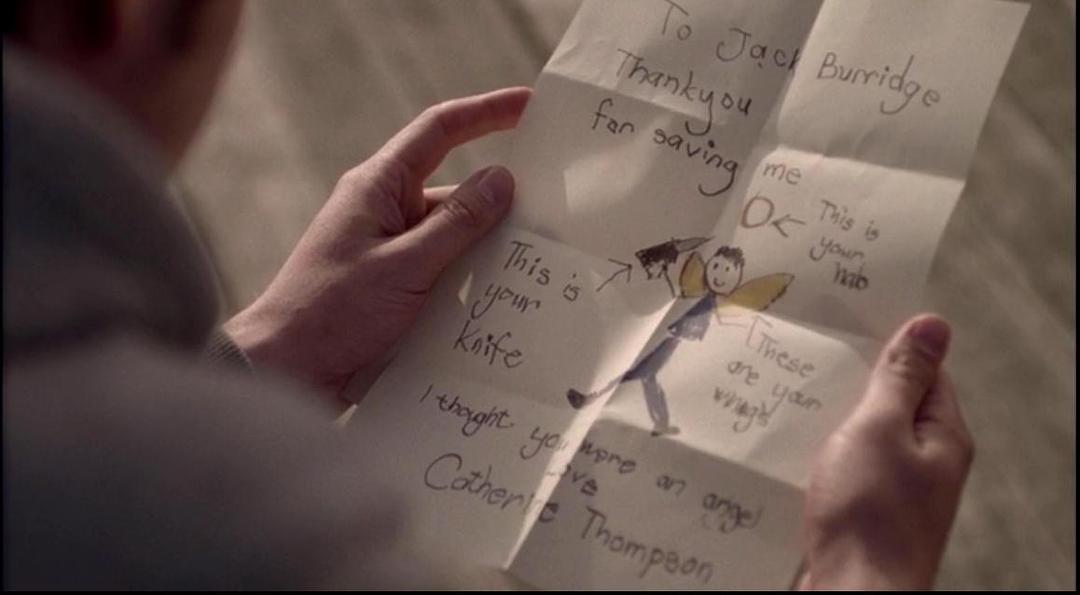 To Jack Burridge
Thankyou
for saving me
This is
your
halo
This is
your
Knife
These
are your
wings
I thought you were an angel
Love
Catherine Thompson